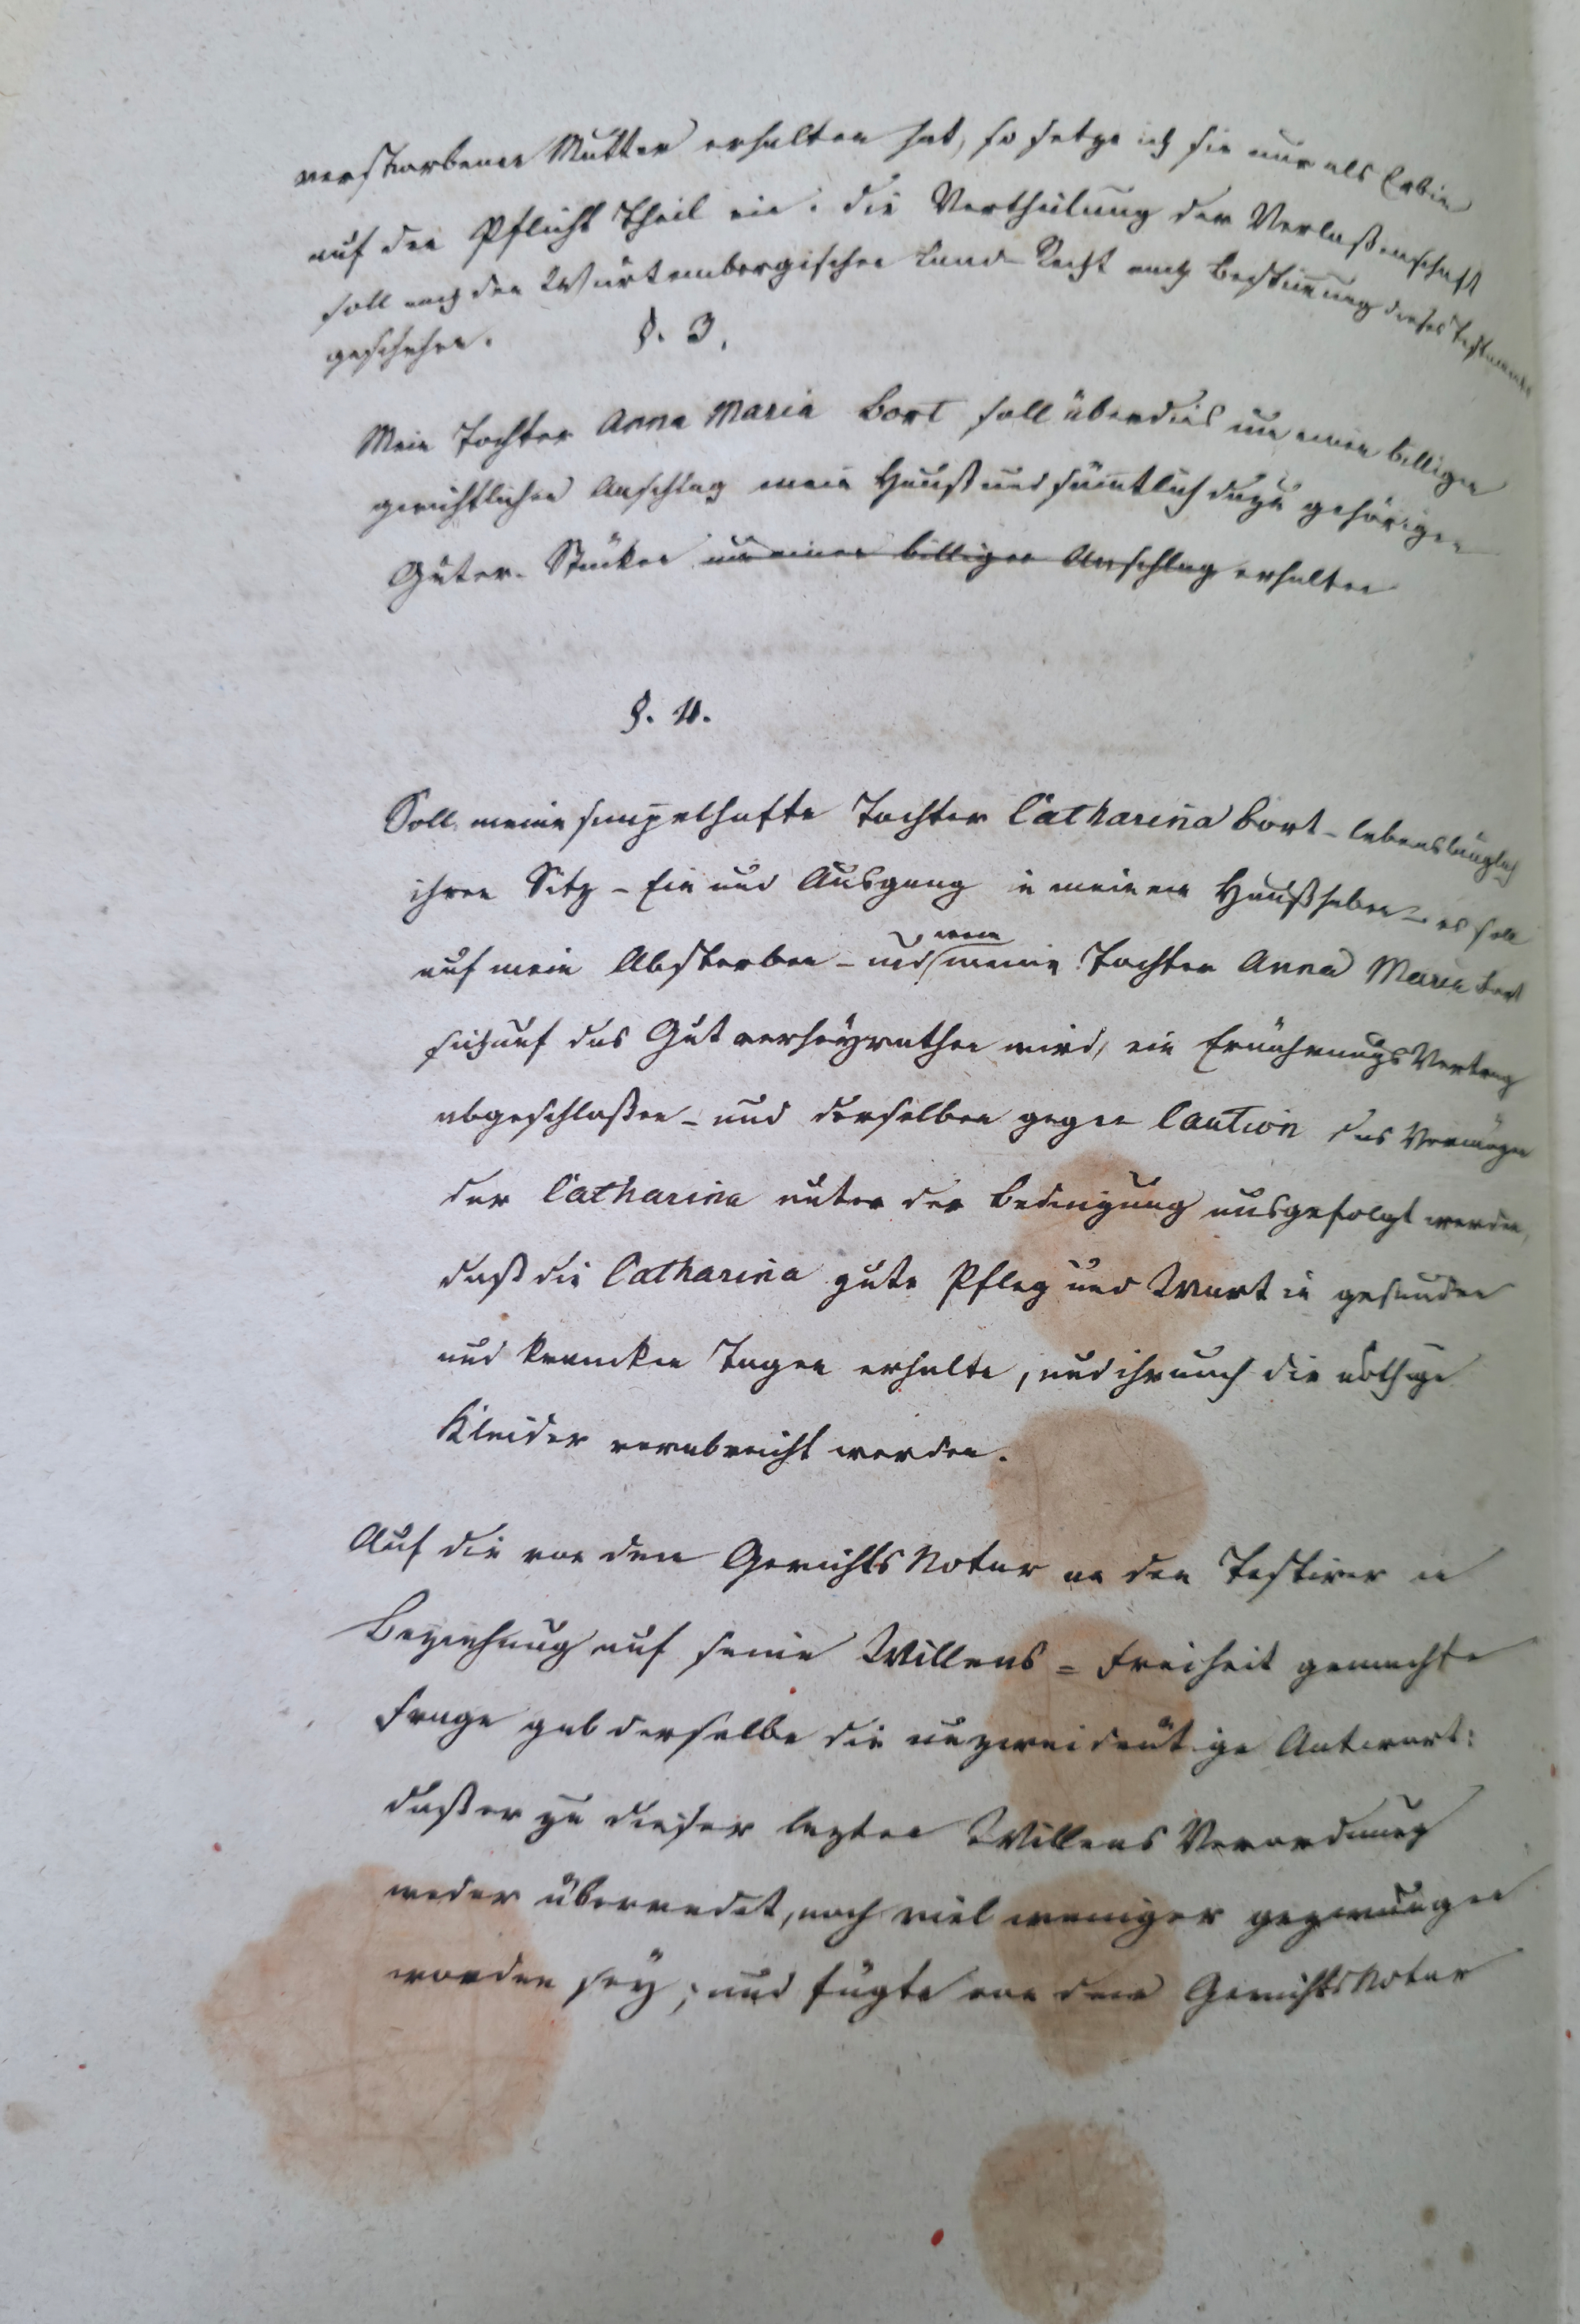 verstorbenen Mutter erhalten hat, so setze ich sie nur als Erbin
auf den Pflicht Theil ein. die Vertheilung der Verlaßenschaft
soll nach den Würtembergischen Land-Recht nach Bestimung dieses Testaments
geschehen.
§. 3.
Mein Tochter Anna Maria Bort soll überdies um einen billigen
gerichtlichen Anschlag mein Hauß und sämtlich dazu gehörigen
Güter-Stücken um einen billigen Anschlag erhalten
§. 4.
Soll meine simpelhafte Tochter Catharina Bort - lebenslänglich
ihren Sitz - Ein und Ausgang in meinem Hauß haben - es soll
wenn
auf mein Absterben - und meine Tochter Anna Maria Bort
sich auf das Gut verheyrathen wird, ein Ernährungs Vertrag
abgeschloßen - und derselben gegen Caution das Vermögen
der Catharina unter der Bedingung ausgefolgt werden,
daß die Catharina gute Pfleg und Wart in gesunden
und krancken Tagen erhalte, und ihr auch die nöthige
Kleider verabreicht werden.
Auf die von dem Gerichts Notar an den Testirer in
Beziehung auf seine Willens = Freiheit gemachte
Frage gab derselbe die unzweideutige Antwort:
daß er zu dieser lezten Willens Verordnung
weder überredet, noch viel weniger gezwungen
worden sey; und fügte von dem Gerichts Notar